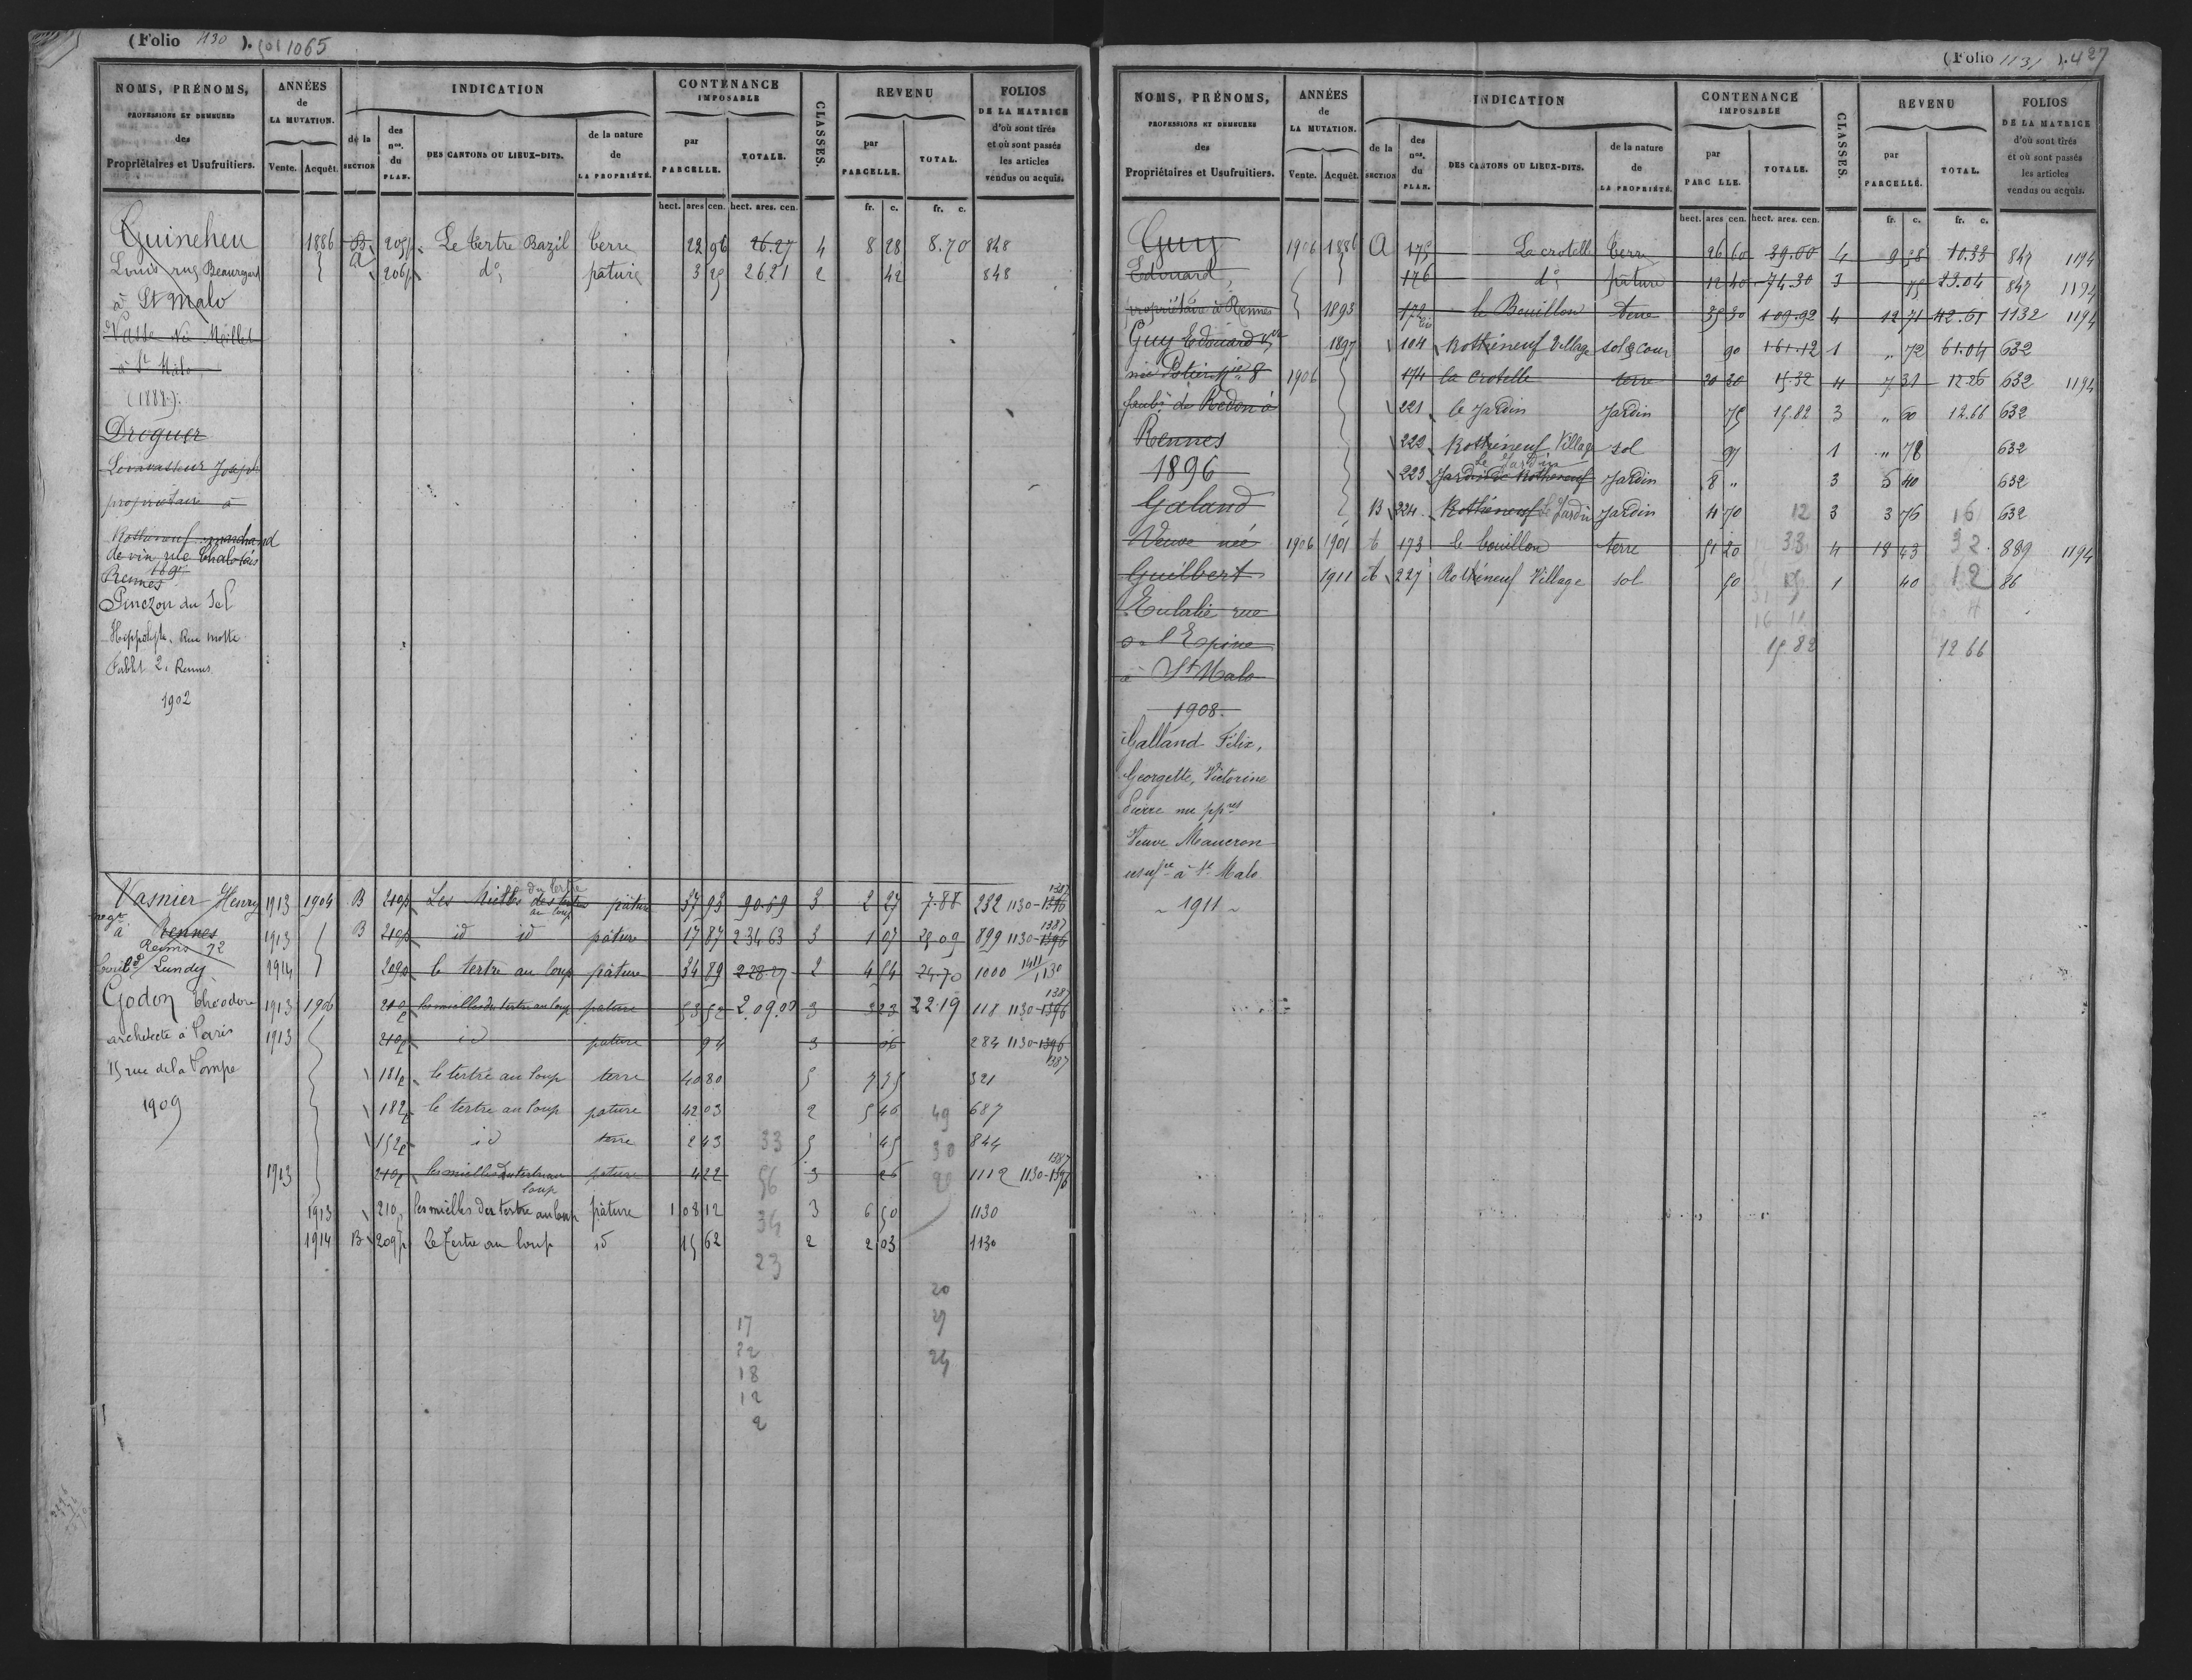 (Folio 1130 ). fol 1065
NOMS, PRÉNOMS,
PROFESSIONS ET DEMEURES
des
Propriétaires et Usufruitiers.
ANNÉES
de
LA MUTATION.
Vente. Acquêt.
INDICATION
de la SECTION
des nos. du PLAN.
DES CANTONS OU LIEUX-DITS.
de la nature de LA PROPRIÉTÉ.
CONTENANCE
IMPOSABLE
par PARCELLE.
TOTALE.
hect. ares cen. hect. ares. cen.
CLASSES.
REVENU
par PARCELLE.
TOTAL.
fr. c. fr. c.
FOLIOS
DE LA MATRICE
d'où sont tirés
et où sont passés
les articles
vendus ou acquis.
Guineheu 1886 B 205p Le Tertre Bazil Terre 22 96 26.27 4 8 28 8.70 848
Louis rue Beauregard A 206p do pâture 3 25 26 21 2 42 848
à St Malo
Née Meillet
à St Malo
(1888).
Droguer
Levavasseur Joseph
propriétaire à
Rothéneuf marchand
de vin rue Chalotais
Rennes
Pinczon du Sel
Hippolyte, Rue Motte
Fablet 2, Rennes
1902
Vasnier Henry 1913 1904 B 210p Les Mielles du tertre au loup pâture 37 93 90.69 3 2 27 7.88 232 1130-1396 1387
negt à Rennes 1913 B 210p id id pâture 17 87 2 34 63 3 1 07 25 09 899 1130-1396 1387
Reims 72
Bould Lundy 1914 209p le tertre au loup pâture 34 89 2 28 27 2 4 54 24.70 1000 1411 1130
Godon Théodore 1913 1906 210p les mielles du tertre au loup pature 53 52 2.09.00 3 3 23 22.19 118 1130-1396 1387
architecte à Paris 1913 210p id pature 94 3 06 284 1130-1396 1387
15 rue de la Pompe 181p le tertre au loup terre 40 80 5 7 75 321
1909 182p le tertre au loup pature 42 03 2 5 46 49 687
152p id terre 2 43 33 5 45 30 844
1913 210p les mielles du tertre au loup pature 4 22 56 3 26 1112 1130-1396 1387
1913 210p les mielles du tertre au loup pâture 1 08 12 34 3 6 50 1130
1914 B 209p Le Tertre au loup id 15 62 2 2 03 1130
23
20
17
22 24
18
12
2
(Folio 1131 ). 427
NOMS, PRÉNOMS,
PROFESSIONS ET DEMEURES
des
Propriétaires et Usufruitiers.
ANNÉES
de
LA MUTATION.
Vente. Acquêt.
INDICATION
de la SECTION
des nos. du PLAN.
DES CANTONS OU LIEUX-DITS.
de la nature de LA PROPRIÉTÉ.
CONTENANCE
IMPOSABLE
par PARC LLE.
TOTALE.
hect. ares cen. hect. ares. cen.
CLASSES.
REVENU
par PARCELLE.
TOTAL.
fr. c. fr. c.
FOLIOS
DE LA MATRICE
d'où sont tirés
et où sont passés
les articles
vendus ou acquis.
Guy 1906 1886 A 175 La crotelle Terre 26 60 39.00 4 9 58 10.33 847 1194
Edouard, 176 do pâture 12 40 74.30 3 75 23.04 847 1194
propriétaire à Rennes 1893 172 bis le Bouillon Terre 35 30 1 09.92 4 12 71 42.61 1132 1194
Guy Edouard Vve 1897 104 Rothéneuf Village sol & cour 90 1 61.12 1 " 72 61.04 632
née 1906 174 la Crotelle terre 20 30 15.32 4 7 31 12 26 632 1194
faubg de Redon à 221 le Jardin Jardin 75 15.82 3 " 60 12.66 632
Rennes 222 Rothéneuf Village sol 97 1 " 78 632
1896 223 Jardin de Rotheneuf Le Jardin Jardin 8 " 3 6 40 632
Galand B 224 Rothéneuf Le Jardin Jardin 4 70 12 3 3 76 16 632
Veuve née 1906 1901 173 le bouillon terre 51 20 33 4 18 43 32 889 1194
Guilbert 1911 227 Rothéneuf Village sol 50 1 40 12 86
Eulalie rue
de l'Epine 15 82 12 66
à St Malo
1908.
Galland Félix,
Georgette, Victorine
Pierre nu ppres
Veuve Maucron
usufre à St Malo
~ 1911 ~